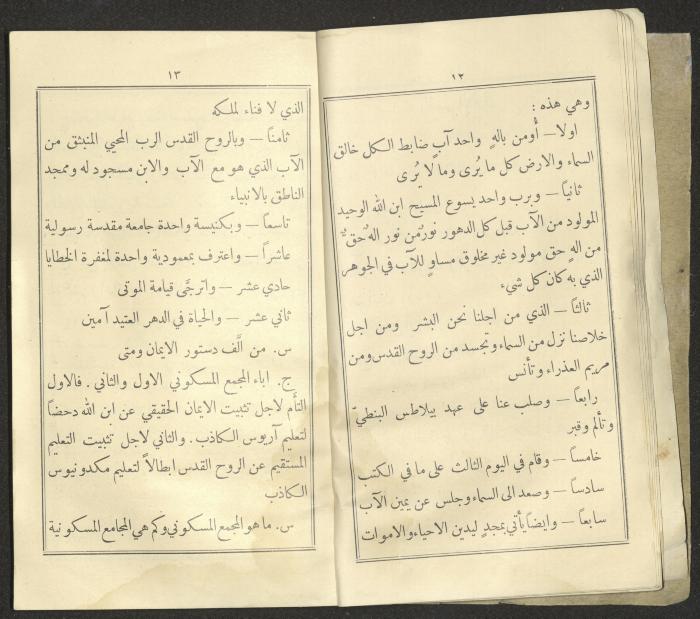 ١٢
وهي هذه :
اولا — أُومن بالهٍ واحد آبٍ ضابط الكل خالق
السماء والارض كل ما يُرى وما لا يُرى
ثانياً — وبرب واحد يسوع المسيح ابن الله الوحيد
المولود من الآب قبل كل الدهور نورٌ من نور الهٌ حقٌ
من الهٍ حق مولود غير مخلوق مساوٍ للآب في الجوهر
الذي به كان كل شيء
ثالثاً — الذي من اجلنا نحن البشر ومن اجل
خلاصنا نزل من السماء وتجسد من الروح القدس ومن
مريم العذراء وتأنس
رابعاً — وصلب عنا على عهد بيلاطس البنطيّ
وتألم وقبر
خامساً — وقام في اليوم الثالث على ما في الكتب
سادساً — وصعد الى السماء وجلس عن يمين الآب
سابعاً — وايضاً يأتي بمجدٍ ليدين الاحياء والاموات
١٣
الذي لا فناء لملكه
ثامناً — وبالروح القدس الرب المحيي المنبثق من
الآب الذي هو مع الآب والابن مسجود له وممجد
الناطق بالانبياء
تاسعاً — وبكنيسة واحدة جامعة مقدسة رسولية
عاشراً — واعترف بمعمودية واحدة لمغفرة الخطايا
حادي عشر — واترجَّى قيامة الموتى
ثاني عشر — والحياة في الدهر العتيد آمين
س. من الَّف دستور الايمان ومتى
ج. اباء المجمع المسكوني الاول والثاني . فالاول
التأَم لاجل تثبيت الايمان الحقيقي عن ابن الله دحضاً
لتعليم آريوس الكاذب . والثاني لاجل تثبيت التعليم
المستقيم عن الروح القدس ابطالاً لتعليم مكدونيوس
الكاذب
س. ما هو المجمع المسكوني وكم هي المجامع المسكونية